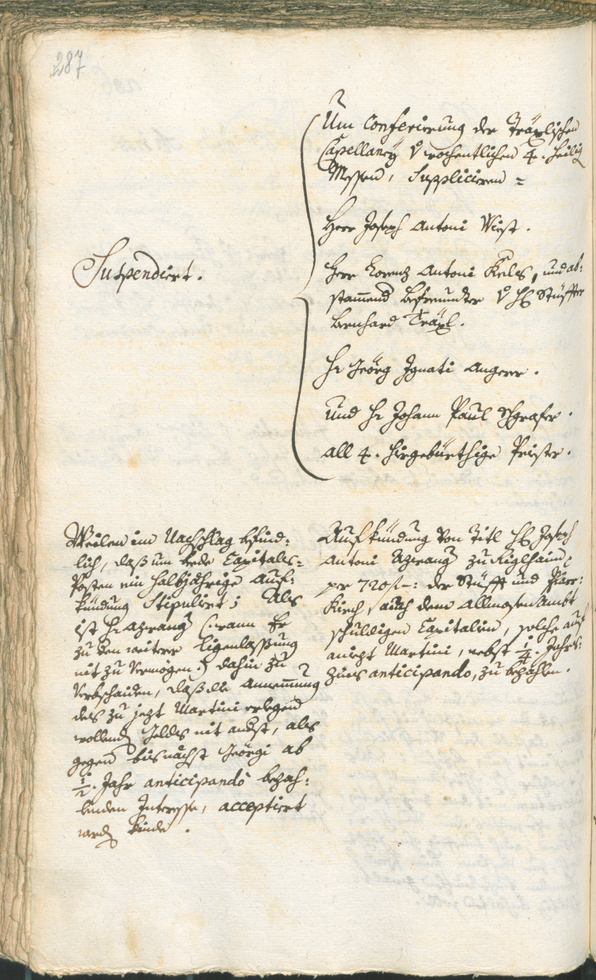 287
Um Conferirung der Träxlischen
Capellaney v wochentlichen 4. heilig
Messen, Supplicieren =
Herr Joseph Antoni Wiest.
Suspendiert.
Herr Lorenz Antoni Keles, und ab-
stammend befreundter v H: Stüffter
Bernhard Träxl.
Hr Geörg Ignati Angerer.
und Hr Johann Paul Schgrafer.
all 4. hiergebürthige Priester.
Weilen im Nachschlag befind-
lich, daß um beede Capitals-
Posten ein halbjährige Auf-
kündung Stipuliert; Als
ist H: Azwang
zu den weitere Eigenlassung
nit zu vermögen dahin zu
verbschaiden, daß die Annemmung
des zu jezt Martini erlegen
wollend Geldes nit andst, als
gegen bis nächst Geörgi ab
1/2. Jahr anticipando bezah-
lenden Interesse, acceptiert
werden künde.
Aufkündung von Titl H: Joseph
Antoni Azwang zu
per 720 f: der Stüfft und Pfarr-
Kirch, auch dem Allmosen Ambt
schuldigen Capitalien, solche auf
anjezt Martini, nebst 1/4. Jahrs-
Zins anticipando, zu bezahlen.